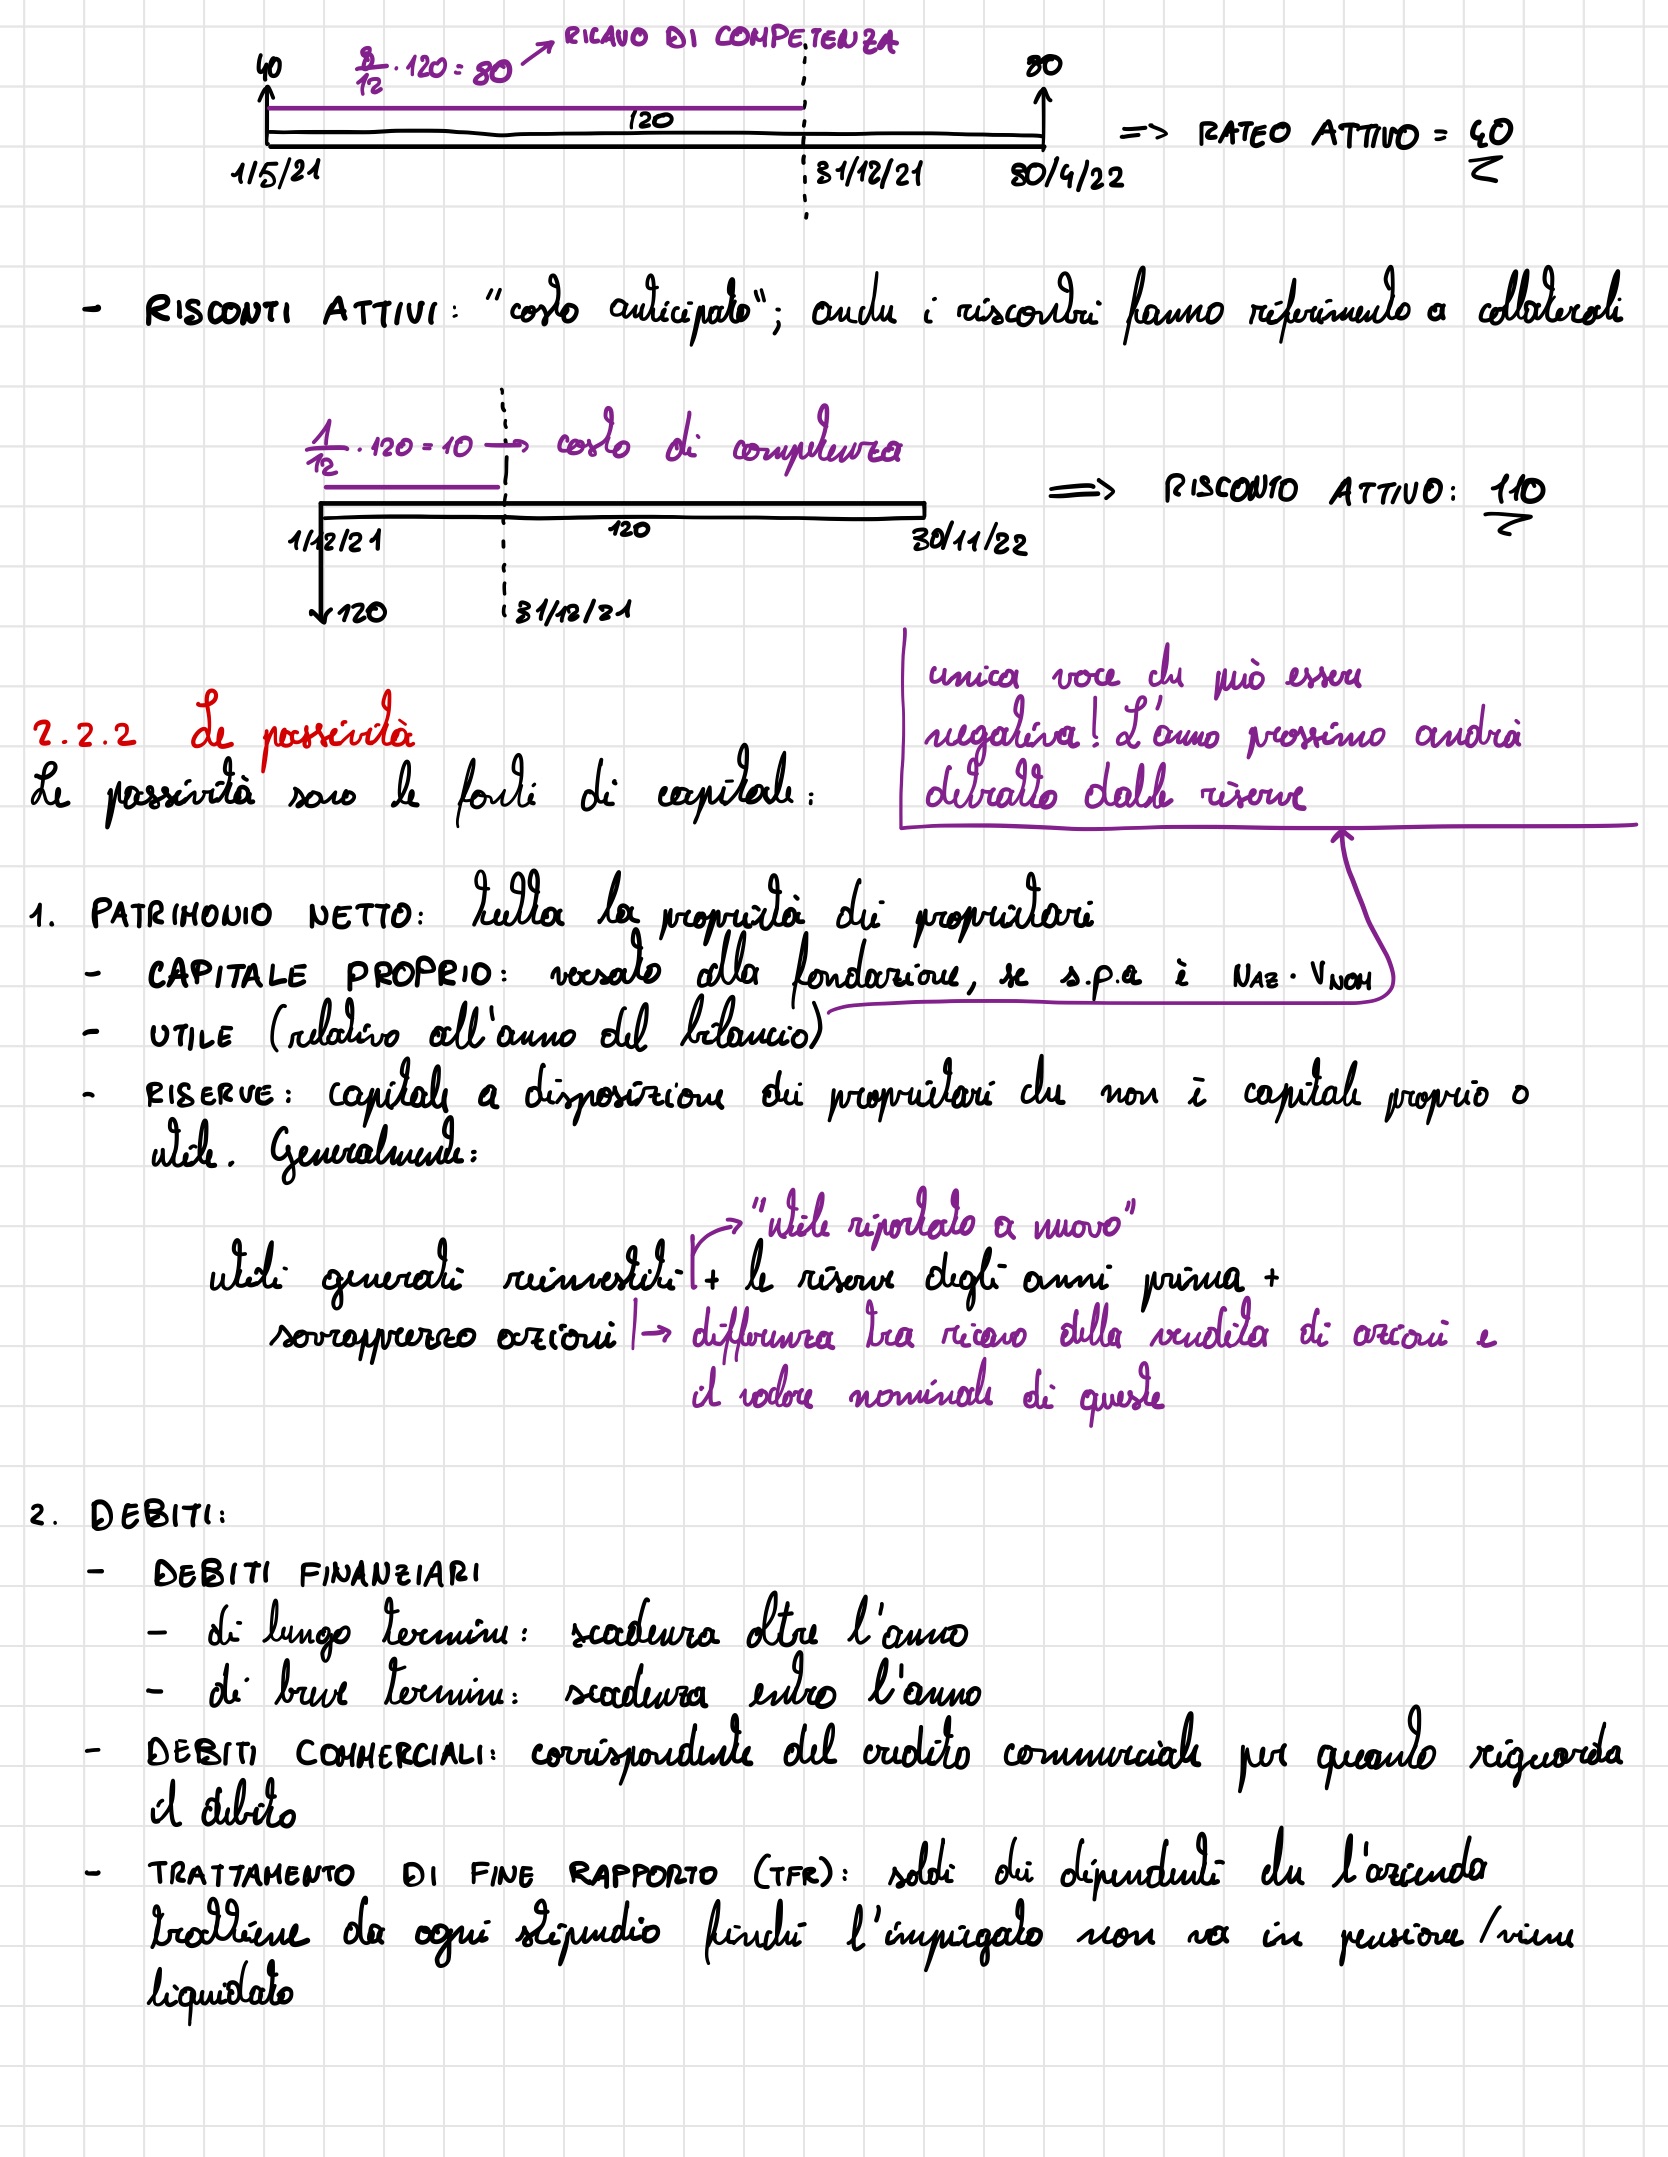 RICAVO DI COMPETENZA
40 8/12 · 120 = 80 80
120
=> RATEO ATTIVO = 40
1/5/21 31/12/21 30/4/22
- RISCONTI ATTIVI: "costo anticipato"; anche i riscontri fanno riferimento a collaterali
1/12 · 120 = 10 → costo di competenza
=> RISCONTO ATTIVO: 110
1/12/21 120 30/11/22
120 31/12/21
unica voce che può essere
negativa! L'anno prossimo andrà
detratto dalle riserve
2.2.2 Le passività
Le passività sono le fonti di capitale:
1. PATRIMONIO NETTO: tutta la proprietà dei proprietari
- CAPITALE PROPRIO: versato alla fondazione, se s.p.a è NAZ · VNOM
- UTILE (relativo all'anno del bilancio)
- RISERVE: capitale a disposizione dei proprietari che non è capitale proprio o
utile. Generalmente:
"utile riportato a nuovo"
utili generati reinvestiti + le riserve degli anni prima +
sovrapprezzo azioni → differenza tra ricavo della vendita di azioni e
il valore nominale di queste
2. DEBITI:
- DEBITI FINANZIARI
- di lungo termine: scadenza oltre l'anno
- di breve termine: scadenza entro l'anno
- DEBITI COMMERCIALI: corrispondente del credito commerciale per quanto riguarda
il debito
- TRATTAMENTO DI FINE RAPPORTO (TFR): soldi dei dipendenti che l'azienda
trattiene da ogni stipendio finché l'impiegato non va in pensione/viene
liquidato